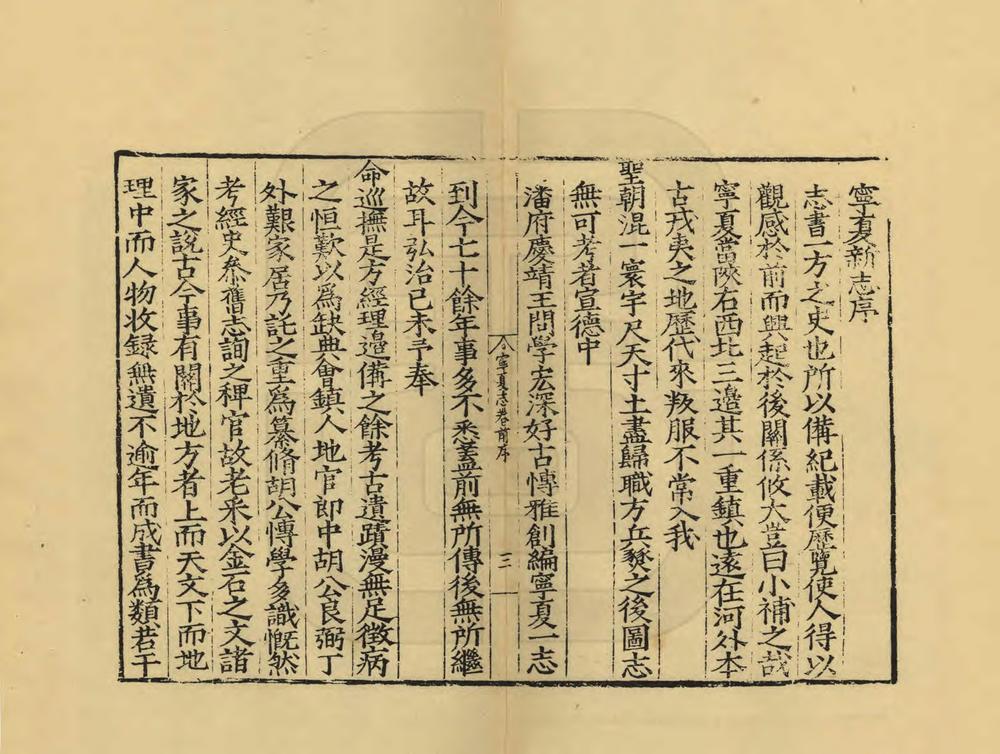 寧夏新志序
志書一方之史也所以備紀載便歷覽使人得以
觀感於前而興起於後關係攸大豈曰小補之哉
寧夏當陝右西北三邊其一重鎮也遠在河外本
古戎夷之地歷代來叛服不常入我
聖朝混一寰宇尺天寸土盡歸職方兵燹之後圖志
無可考者宣德中
藩府慶靖王問學宏深好古慱雅創編寧夏一志
寧夏志卷前序
三
到今七十餘年事多不悉蓋前無所傳後無所繼
故耳弘治己未予奉
命巡撫是方經理邊備之餘考古遺蹟漫無足徵病
之恒歎以為缺典會鎮人地官郎中胡公良弼丁
外艱家居乃託之重為纂脩胡公慱學多識慨然
考經史叅舊志詢之稗官故老釆以金石之文諸
家之說古今事有關於地方者上而天文下而地
理中而人物收録無遺不逾年而成書為類若干